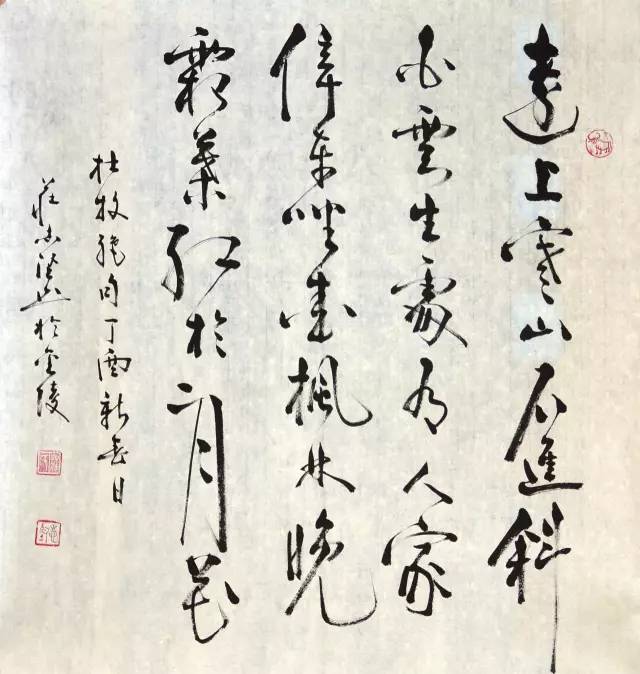 遠上寒山石逕斜
白雲生處有人家
停車坐愛楓林晚
霜葉紅於二月花
杜牧絕句丁酉新春日
莊志於金陵